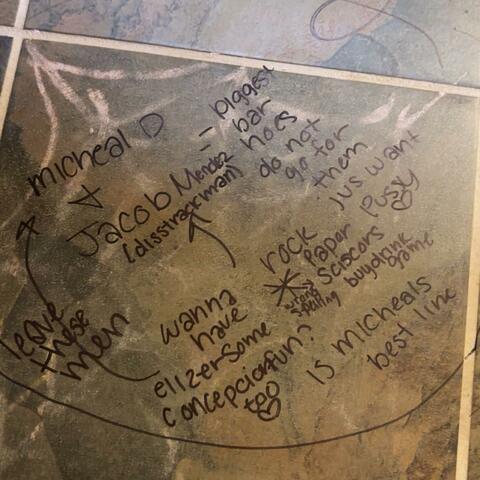 micheal D
&
Jacob Mendez
(disstrackman)
= biggest
bar
hoes
do not
go for
them
jus want
pussy
leave
these
men
wanna
have
some
fun?
elizer
concepcion
too
rock
paper
sciscors
wrong
spelling
buy drink
game
is micheals
best line